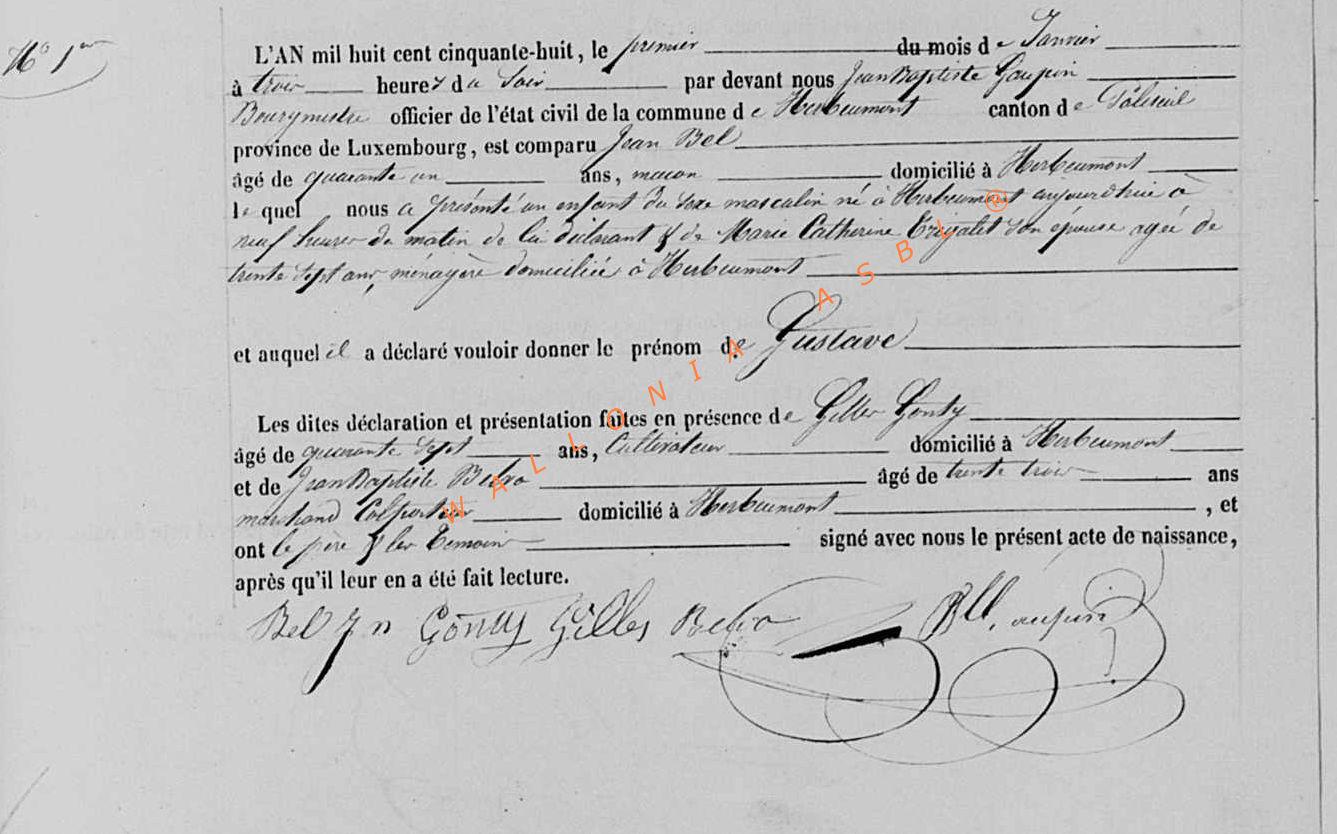 N° 1er
L'AN mil huit cent cinquante-huit, le premier du mois de Janvier
à trois heures du Soir par devant nous Jean Baptiste Gaupin
Bourgmestre officier de l'état civil de la commune de Herbeumont canton de Paliseul
province de Luxembourg, est comparu Jean Bel
âgé de quarante un ans, maçon domicilié à Herbeumont
lequel nous a présenté un enfant du sexe masculin né à Herbeumont aujourdhui à
neuf heures du matin de lui déclarant & de Marie Catherine son épouse agée de
trente sept ans, ménagère domiciliée à Herbeumont
et auquel il a déclaré vouloir donner le prénom de Gustave
Les dites déclaration et présentation faites en présence de Gilles Gonty
âgé de quarante sept ans, Cultivateur domicilié à Herbeumont
et de Jean Baptiste âgé de trente trois ans
marchand Colporteur domicilié à Herbeumont, et
ont le père & les Témoins signé avec nous le présent acte de naissance,
après qu'il leur en a été fait lecture.
Bel Jn Gonty Gilles
WALLONIA ASBL ®